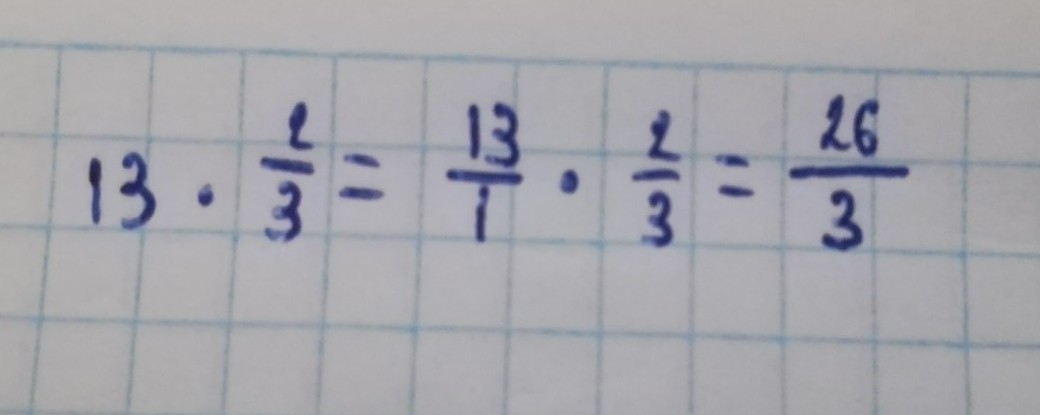 13 · 2/3 = 13/1 · 2/3 = 26/3